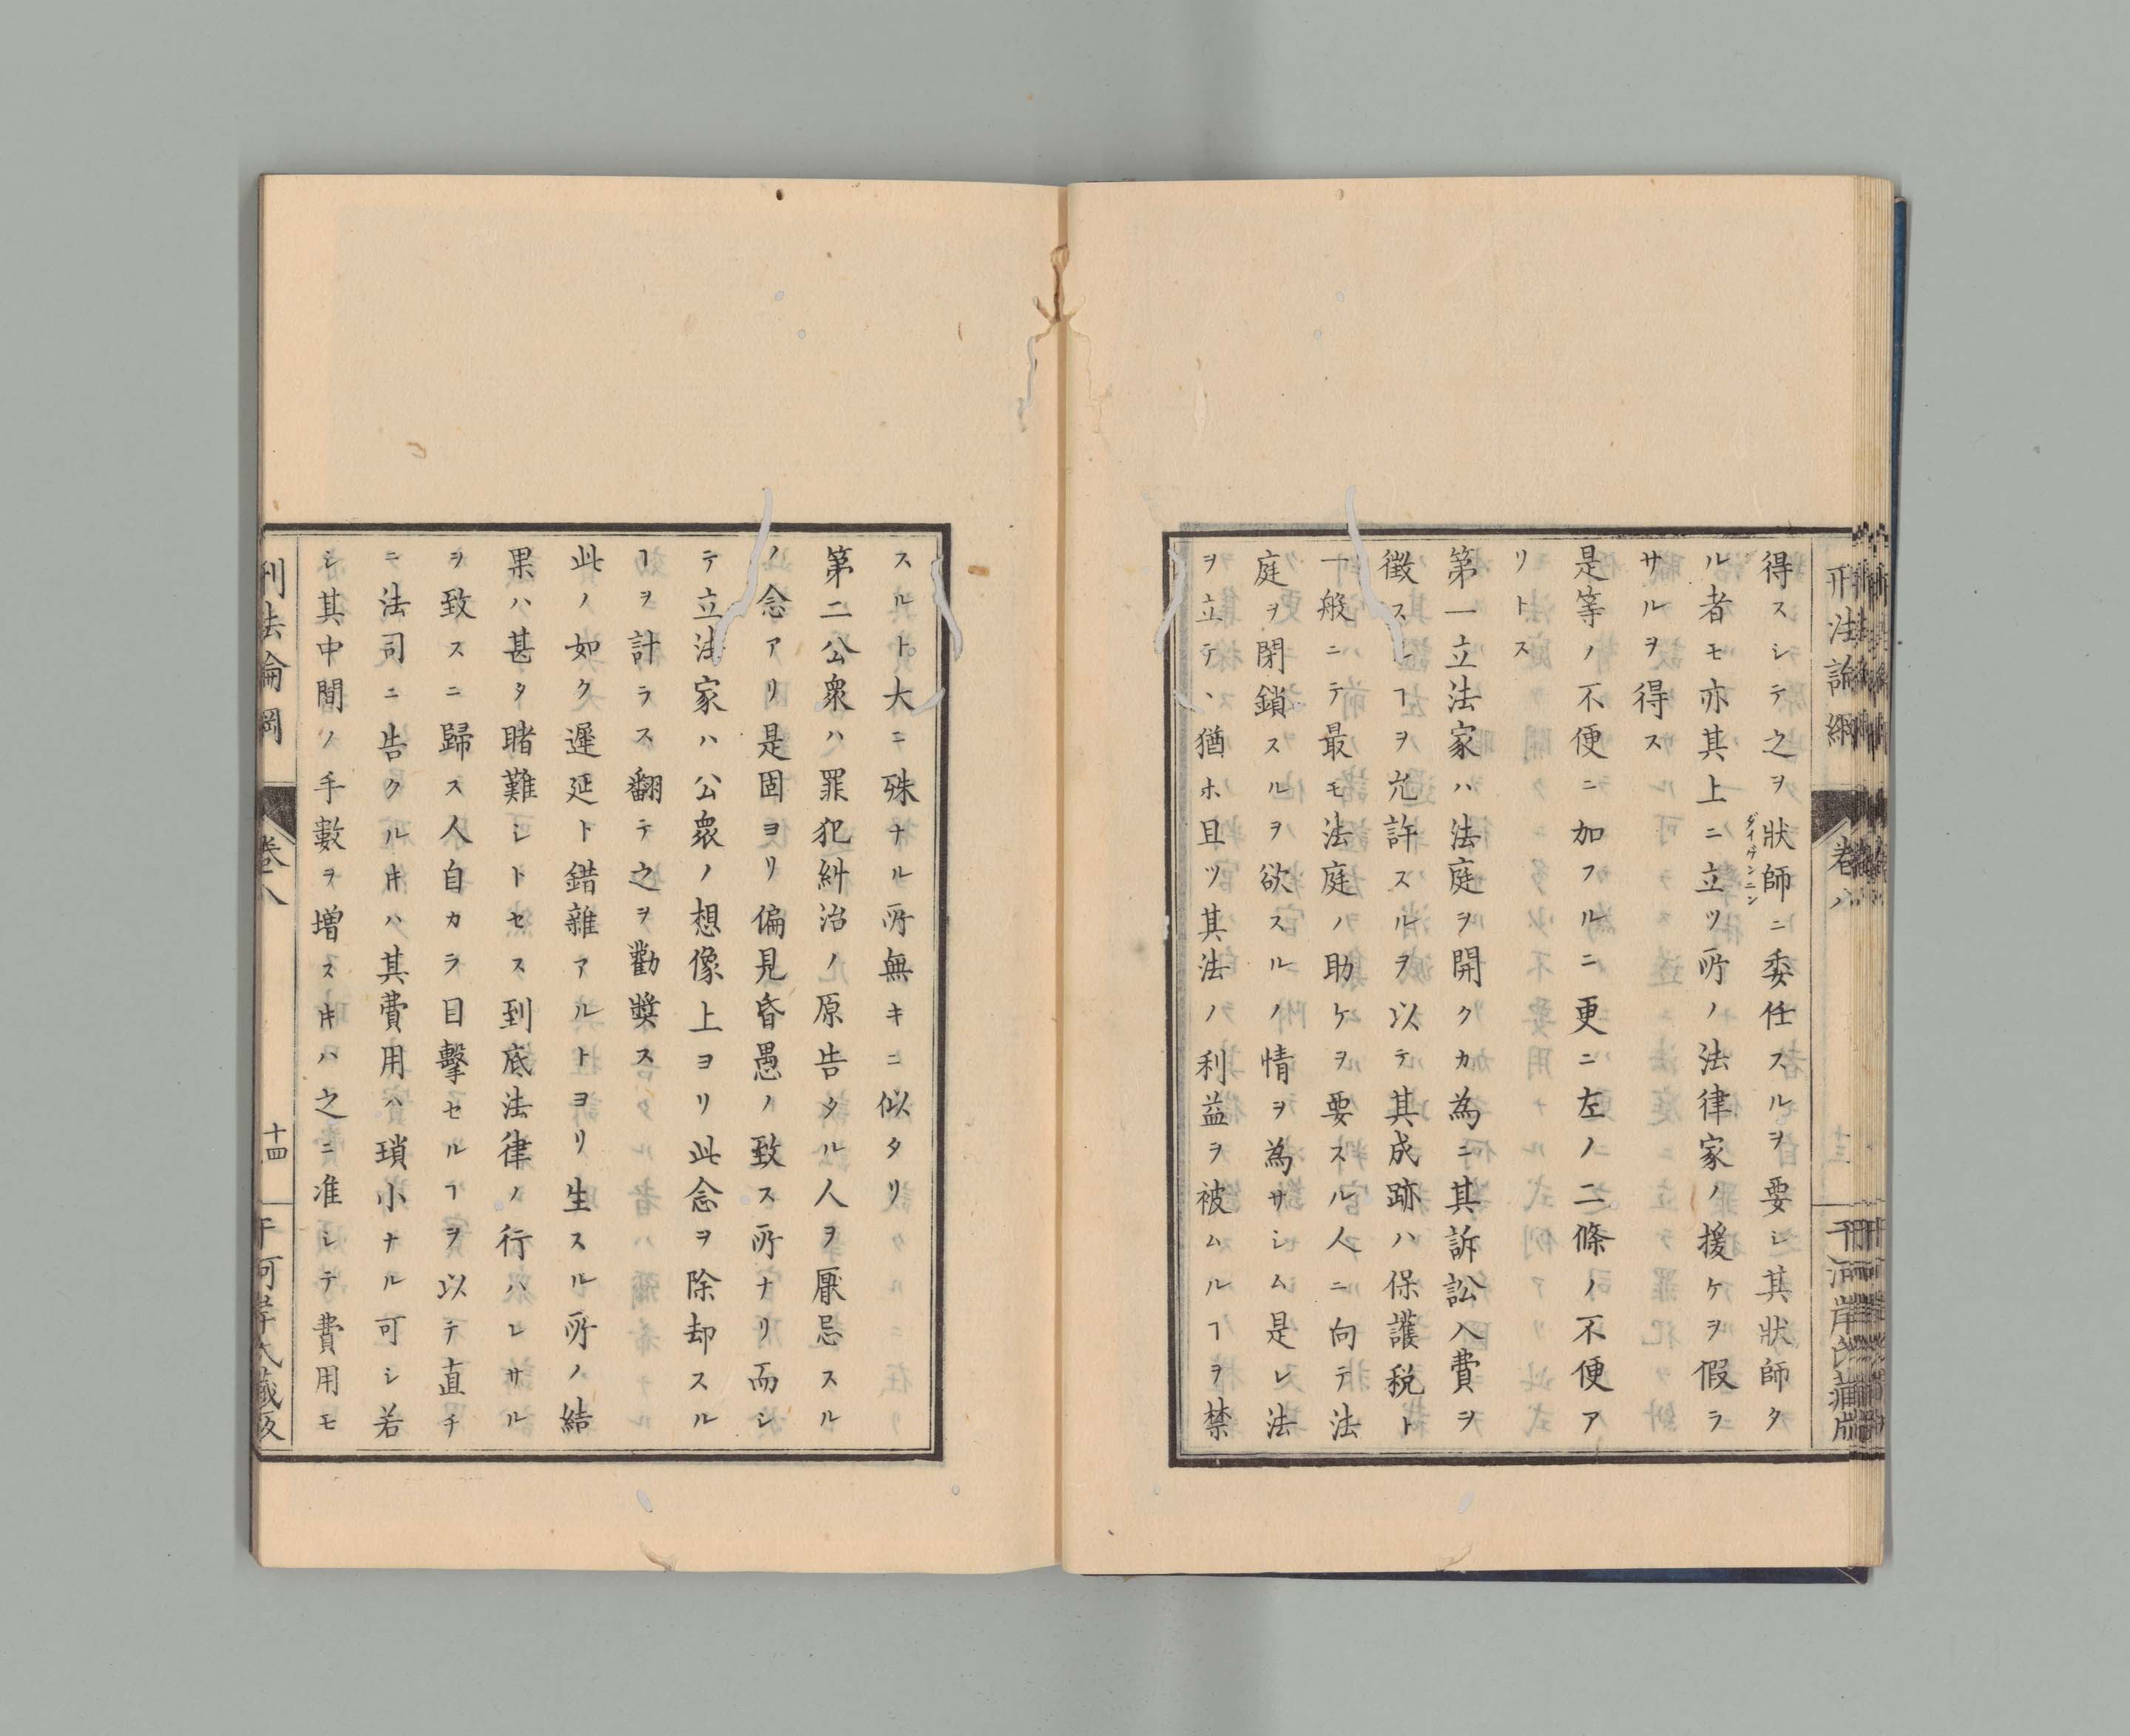 得スシテ之ヲ狀師ニ委任スルヲ要シ其狀師タ
ダイゲンニン
ル者モ亦其上ニ立ツ所ノ法律家ノ援ケヲ假ラ
サルヲ得ス
是等ノ不便ニ加フルニ更ニ左ノ二條ノ不便ア
リトス
第一立法家ハ法庭ヲ開クカ為ニ其訴訟入費ヲ
徵スルヿヲ允許スルヲ以テ其成跡ハ保護稅ト
一般ニテ最モ法庭ノ助ケヲ要スル人ニ向テ法
庭ヲ閉鎖スルヲ欲スルノ情ヲ為サシム是レ法
ヲ立テヽ猶ホ且ツ其法ノ利益ヲ被ムルヿヲ禁
刑法論綱
卷八
スルト大ニ殊ナル所無キニ似タリ
第二公衆ハ罪犯糾治ノ原告タル人ヲ厭忌スル
ノ念アリ是固ヨリ偏見昏愚ノ致ス所ナリ而シ
テ立法家ハ公衆ノ想像上ヨリ此念ヲ除却スル
ヿヲ計ラス翻テ之ヲ勸奬ス
此ノ如ク遲延ト錯雜アルトヨリ生スル所ノ結
果ハ甚タ睹難シトセス到底法律ノ行ハレサル
ヲ致スニ歸ス人自カラ目擊セルヿヲ以テ直チ
ニ法司ニ告クルキハ其費用ハ瑣小ナル可シ若
シ其中間ノ手數ヲ增スキハ之ニ准シテ費用モ
刑法論綱
卷八
十四
干河岸氏藏版